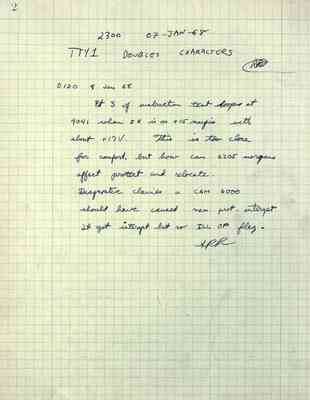 2
2300 07-JAN-68
TTY1 DOUBLES CHARACTERS
0120 8 Jan 68
Pt 3 of instruction test loops at
4041 when is on +15 margin with
about +17V. This is too close
for comfort, but how can margins
effect protect and relocate.
Diagnostic claims a CAM 6000
should have caused mem prot. interupt
It got interupt but no ILL OP flag.